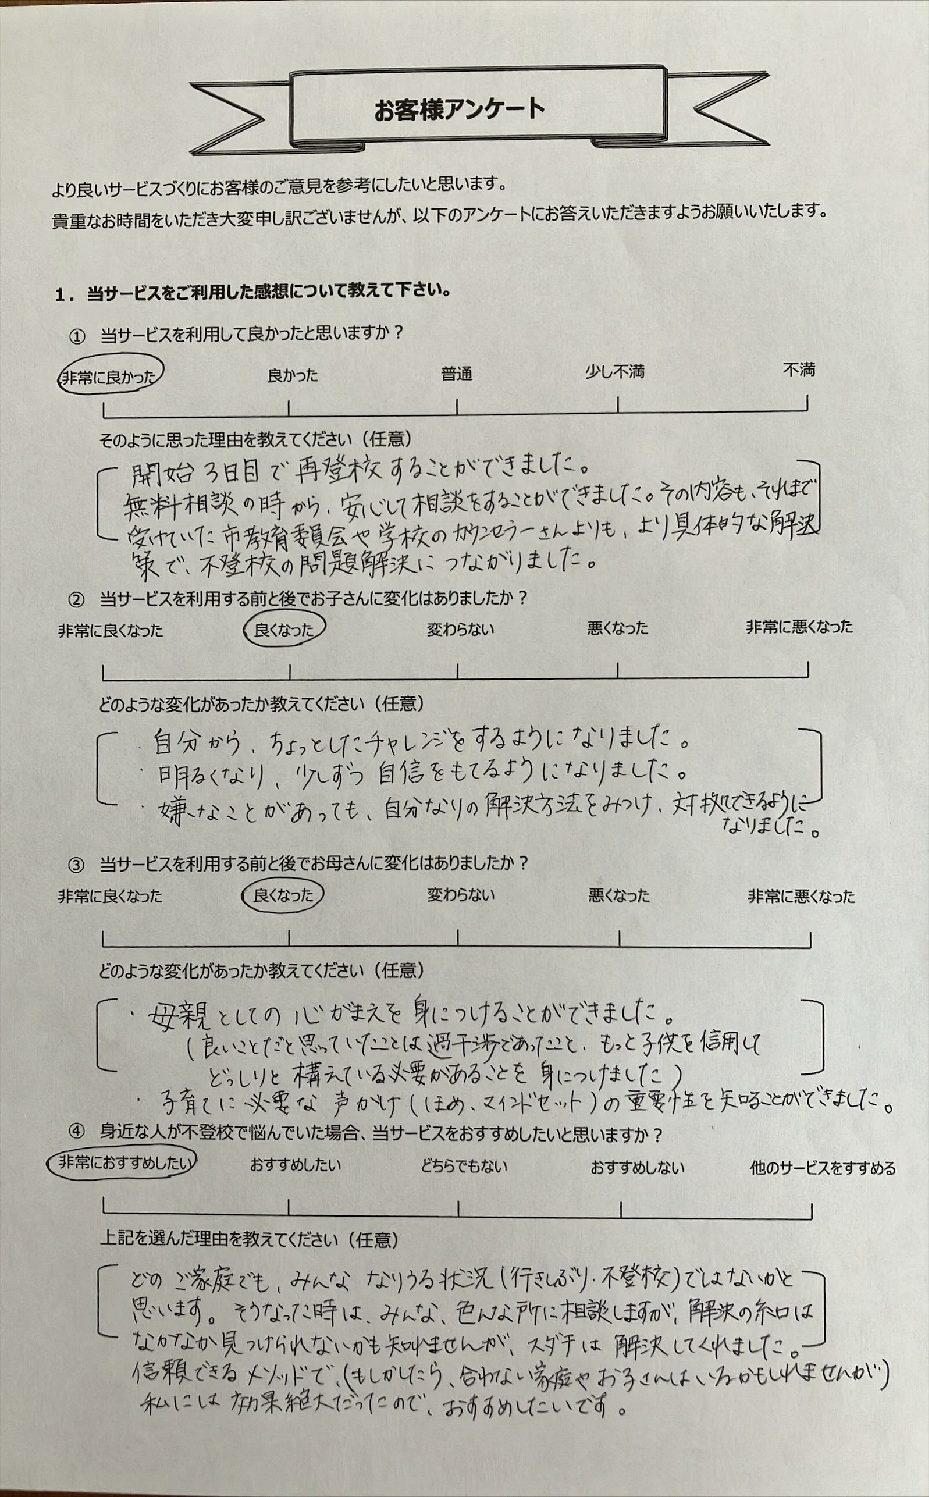 お客様アンケート
より良いサービスづくりにお客様のご意見を参考にしたいと思います。
貴重なお時間をいただき大変申し訳ございませんが、以下のアンケートにお答えいただきますようお願いいたします。
1．当サービスをご利用した感想について教えて下さい。
① 当サービスを利用して良かったと思いますか？
非常に良かった 良かった 普通 少し不満 不満
そのように思った理由を教えてください（任意）
開始3日目で再登校することができました。
無料相談の時から、安心して相談をすることができました。その内容も、それまで
受けていた市教育委員会や学校のカウンセラーさんよりも、より具体的な解決
策で、不登校の問題解決につながりました。
② 当サービスを利用する前と後でお子さんに変化はありましたか？
非常に良くなった 良くなった 変わらない 悪くなった 非常に悪くなった
どのような変化があったか教えてください（任意）
・自分から、ちょっとしたチャレンジをするようになりました。
・明るくなり、少しずつ自信をもてるようになりました。
・嫌なことがあっても、自分なりの解決方法をみつけ、対処できるように
なりました。
③ 当サービスを利用する前と後でお母さんに変化はありましたか？
非常に良くなった 良くなった 変わらない 悪くなった 非常に悪くなった
どのような変化があったか教えてください（任意）
・母親としての心がまえを身につけることができました。
（良いことだと思っていたことは過干渉であったこと、もっと子供を信用して
どっしりと構えている必要があることを身につけました）
・子育てに必要な声かけ（ほめ、マインドセット）の重要性を知ることができました。
④ 身近な人が不登校で悩んでいた場合、当サービスをおすすめしたいと思いますか？
非常におすすめしたい おすすめしたい どちらでもない おすすめしない 他のサービスをすすめる
上記を選んだ理由を教えてください（任意）
どのご家庭でも、みんななりうる状況（行きしぶり・不登校）ではないかと
思います。そうなった時は、みんな、色んな所に相談しますが、解決の糸口は
なかなか見つけられないかも知れませんが、スダチは解決してくれました。
信頼できるメソッドで、（もしかしたら、合わない家庭やお子さんはいるかもしれませんが）
私には効果絶大だったので、おすすめしたいです。